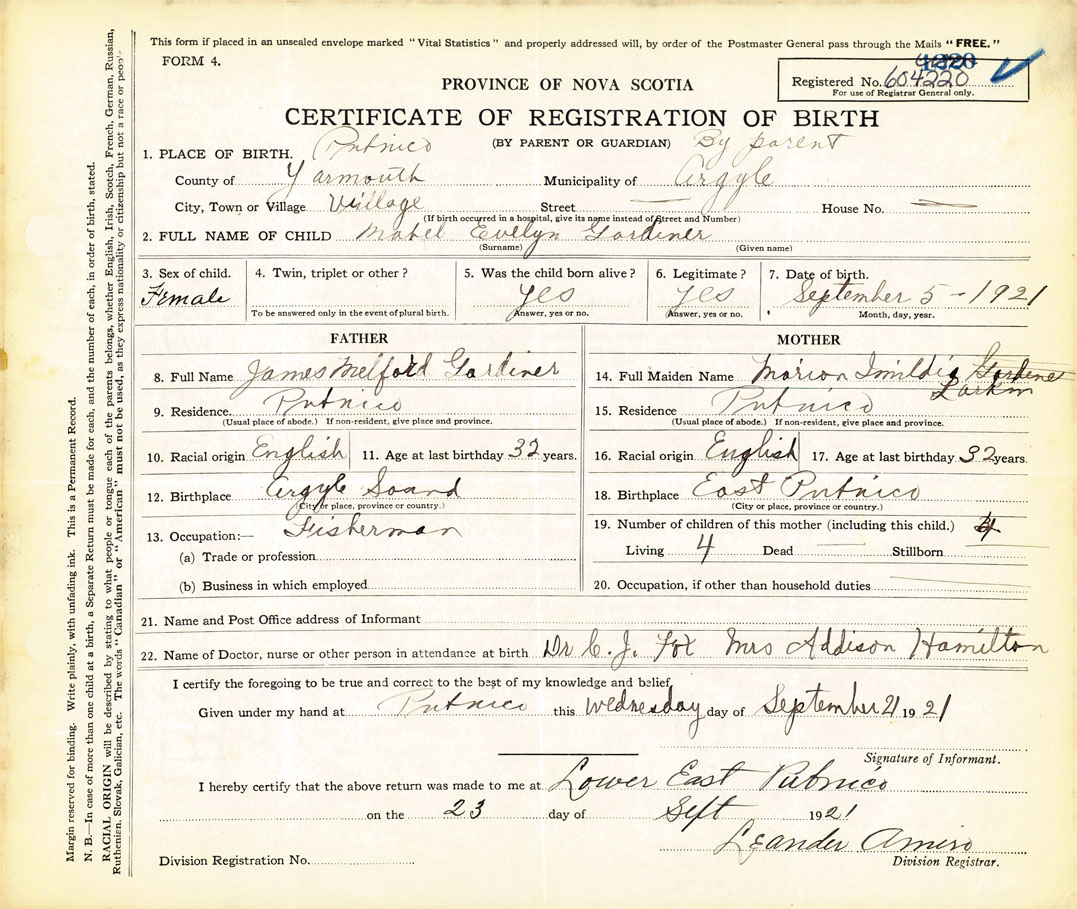 This form if placed in an unsealed envelope marked "Vital Statistics" and properly addressed will, by order of the Postmaster General pass through the Mails "FREE."
FORM 4.
PROVINCE OF NOVA SCOTIA
Registered No. 604220
For use of Registrar General only.
CERTIFICATE OF REGISTRATION OF BIRTH
(BY PARENT OR GUARDIAN) By parent
1. PLACE OF BIRTH. Pubnico
County of Yarmouth Municipality of Argyle
City, Town or Village Village Street — House No. —
(If birth occurred in a hospital, give its name instead of Street and Number)
2. FULL NAME OF CHILD Mabel Evelyn Gardiner
(Surname) (Given name)
3. Sex of child. 4. Twin, triplet or other? 5. Was the child born alive? 6. Legitimate? 7. Date of birth.
Female yes yes September 5 - 1921
To be answered only in the event of plural birth. Answer, yes or no. Answer, yes or no. Month, day, year.
FATHER
8. Full Name James Melford Gardiner
9. Residence. Pubnico
(Usual place of abode.) If non-resident, give place and province.
10. Racial origin English 11. Age at last birthday 32 years.
12. Birthplace Argyle Sound
(City or place, province or country.)
13. Occupation:— Fisherman
(a) Trade or profession
(b) Business in which employed
MOTHER
14. Full Maiden Name Marion Imildia Gardiner
Larkin
15. Residence Pubnico
(Usual place of abode.) If non-resident, give place and province.
16. Racial origin English 17. Age at last birthday 32 years.
18. Birthplace East Pubnico
(City or place, province or country.)
19. Number of children of this mother (including this child.) 4
Living 4 Dead — Stillborn
20. Occupation, if other than household duties
21. Name and Post Office address of Informant
22. Name of Doctor, nurse or other person in attendance at birth Dr C. J. Fox Mrs Addison Hamilton
I certify the foregoing to be true and correct to the best of my knowledge and belief.
Given under my hand at Pubnico this Wednesday day of September 21 1921
Signature of Informant.
I hereby certify that the above return was made to me at Lower East Pubnico
on the 23 day of Sept 1921
Leander Amiro
Division Registration No. Division Registrar.
Margin reserved for binding. Write plainly, with unfading ink. This is a Permanent Record.
N. B.—In case of more than one child at a birth, a Separate Return must be made for each, and the number of each, in order of birth, stated.
RACIAL ORIGIN will be described by stating to what people or tongue each of the parents belongs, whether English, Irish, Scotch, French, German, Russian,
Ruthenian, Slovak, Galician, etc. The words "Canadian" or "American" must not be used, as they express nationality or citizenship but not a race or people.